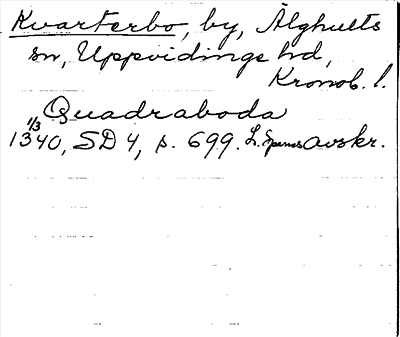 Kvarterbo, by, Älghults
sn, Uppvidinge hd,
Kronob. l.
Quadraboda
1/3
1340, SD 4, s. 699. L. Spennes avskr.